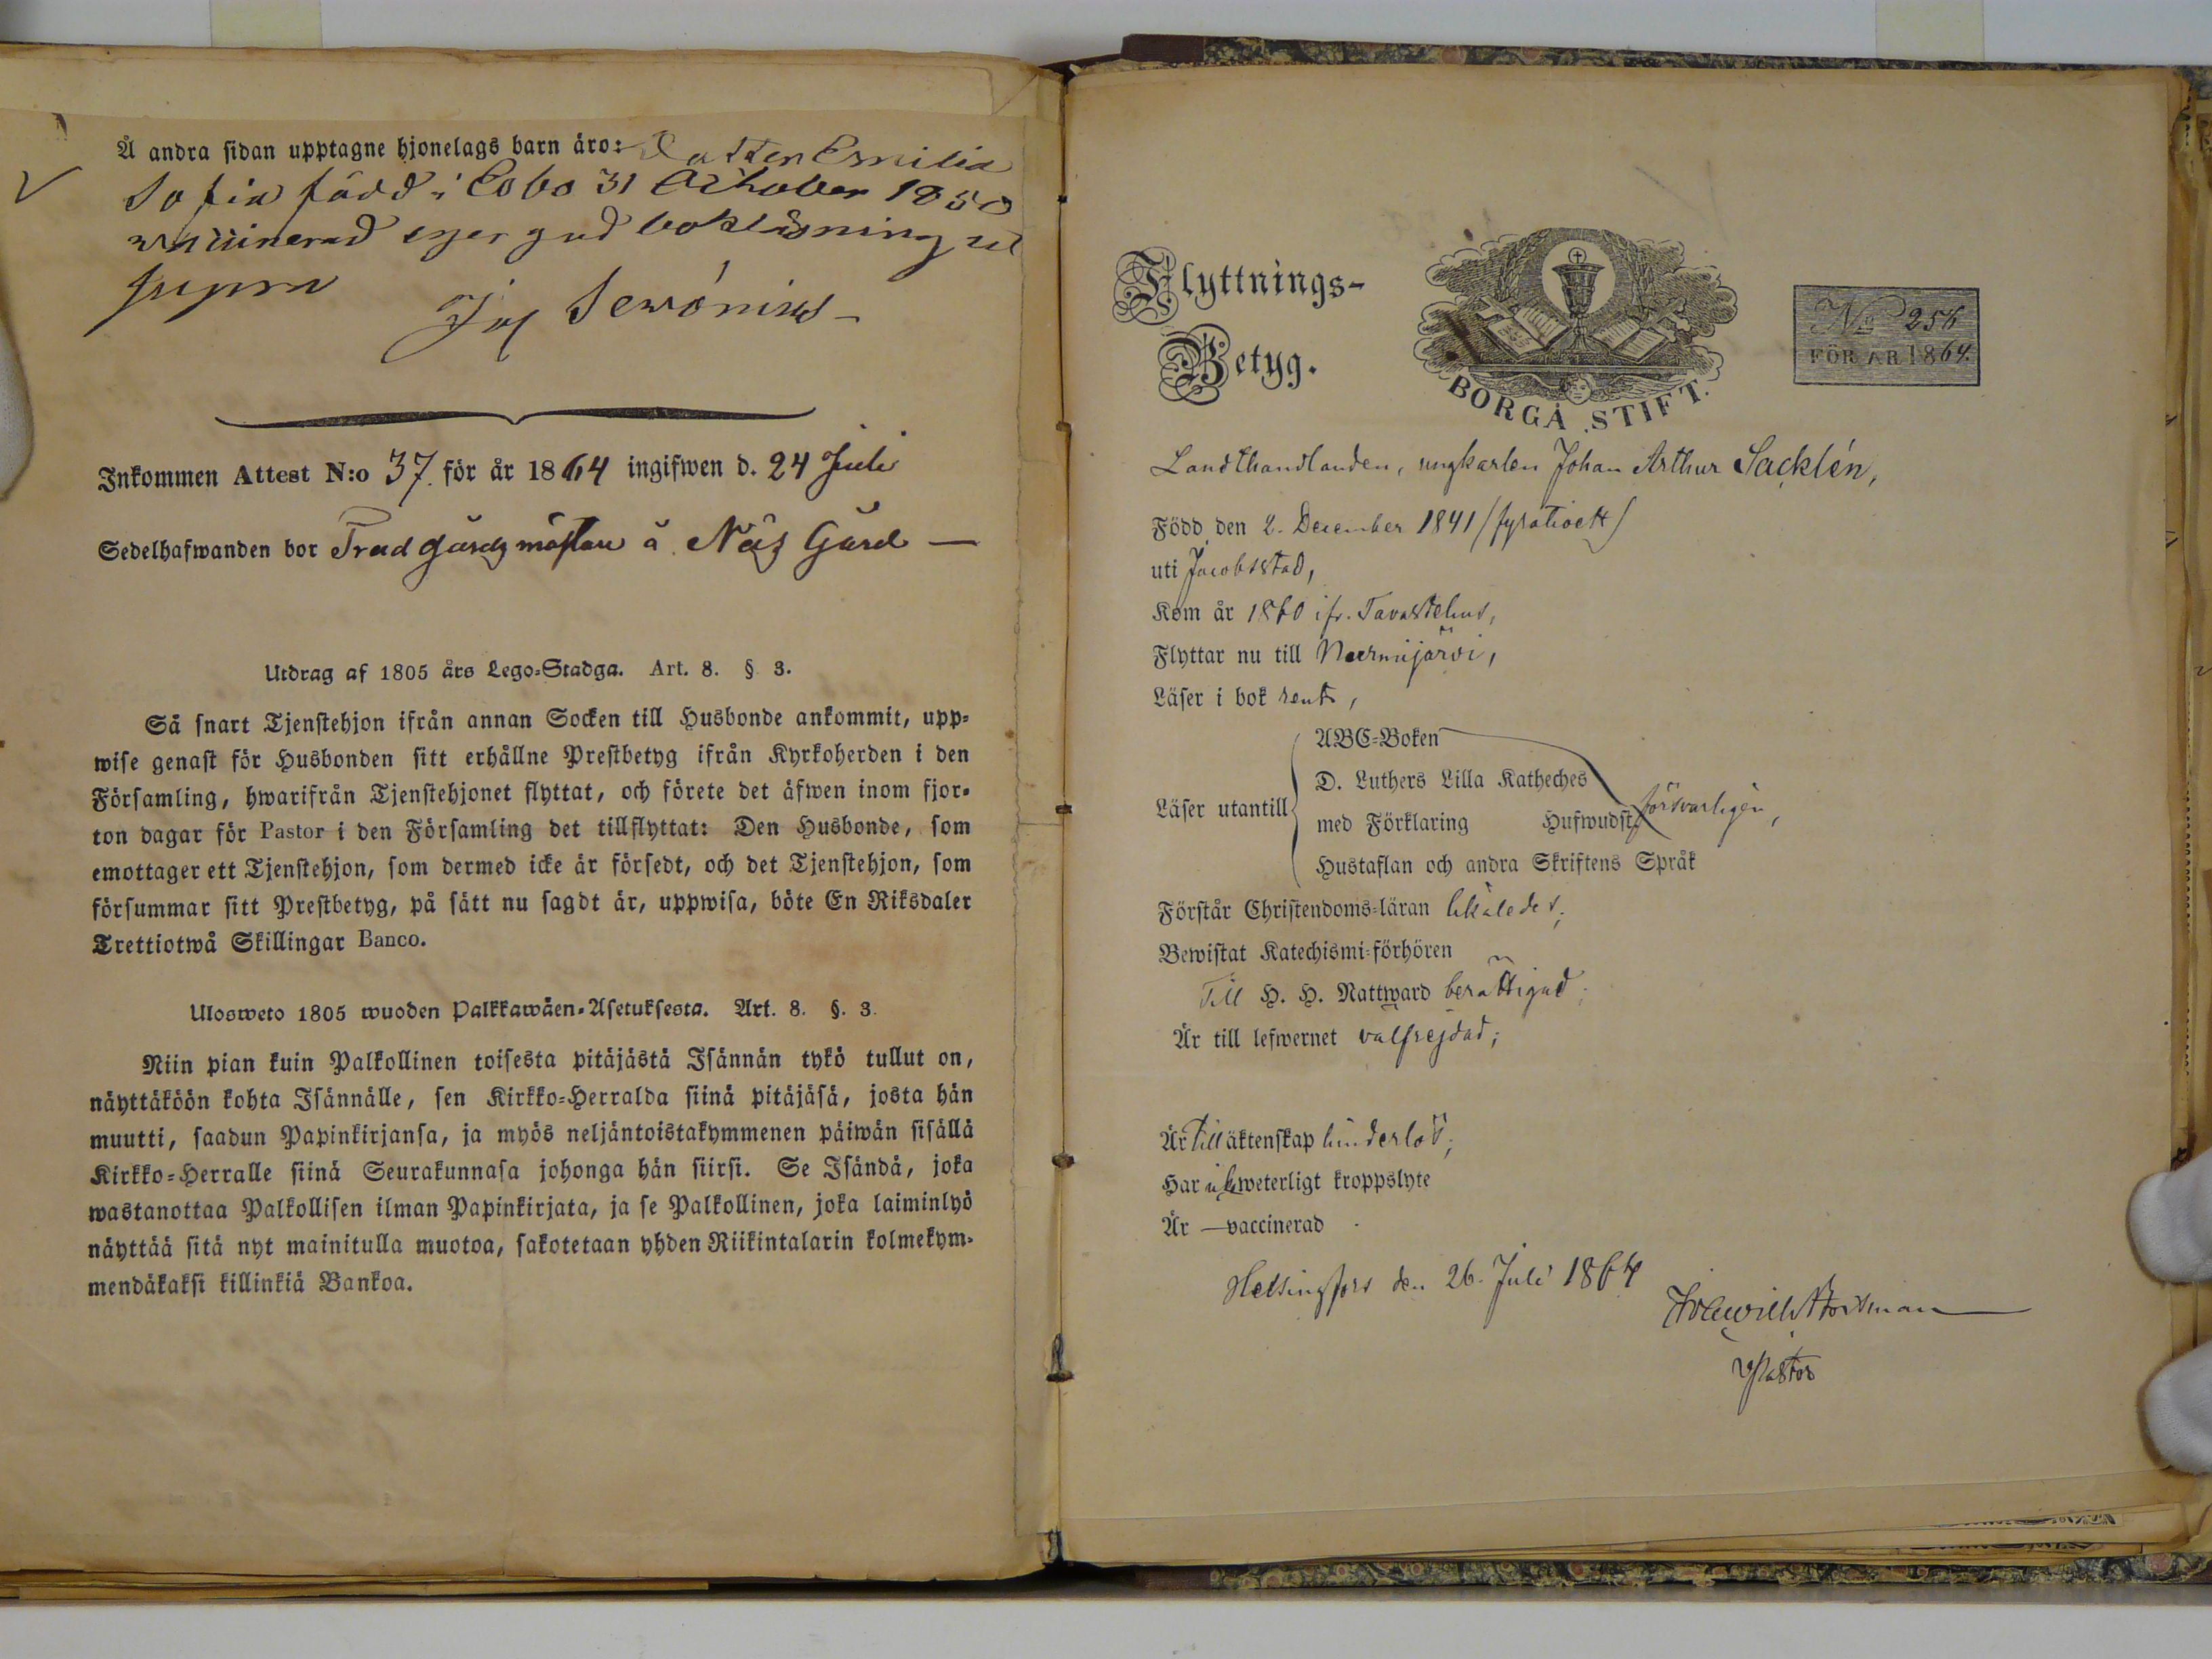 Å andra sidan upptagne hjonelags barn äro: Dottren Emilia
Sofia född i Esbo 31 October 1850
vaccinerad eger god bokläsning ut
supra
Sewónius
Inkommen Attest N:o 37 för år 1864 ingifwen d. 24 Juli
Sedelhafwanden bor Tradgårdsmästare å Näs Gård —
Utdrag af 1805 års Lego-Stadga. Art. 8. § 3.
Så snart Tjenstehjon ifrån annan Socken till Husbonde ankommit, upp-
wise genast för Husbonden sitt erhållne Prestbetyg ifrån Kyrkoherden i den
Församling, hwarifrån Tjenstehjonet flyttat, och förete det äfwen inom fjor-
ton dagar för Pastor i den Församling det tillflyttat: Den Husbonde, som
emottager ett Tjenstehjon, som dermed icke är försedt, och det Tjenstehjon, som
försummar sitt Prestbetyg, på sätt nu sagdt är, uppwisa, böte En Riksdaler
Trettiotwå Skillingar Banco.
Ulosweto 1805 wuoden Palkkawäen-Asetuksesta. Art. 8. §. 3.
Niin pian kuin Palkollinen toisesta pitäjästä Isännän tykö tullut on,
näyttäköön kohta Isännälle, sen Kirkko-Herralda siinä pitäjäsä, josta hän
muutti, saadun Papinkirjansa, ja myös neljäntoistakymmenen päiwän sisällä
Kirkko-Herralle siinä Seurakunnasa johonga hän siirsi. Se Isändä, joka
wastanottaa Palkollisen ilman Papinkirjata, ja se Palkollinen, joka laiminlyö
näyttää sitä nyt mainitulla muotoa, sakotetaan yhden Riikintalarin kolmekym-
mendäkaksi killinkiä Bankoa.
Flyttnings-
Betyg.
BORGÅ STIFT.
No 256
FÖR ÅR 1864.
Landthandlanden, ungkarlen Johan Arthur Sacklén,
Född den 2. December 1841 /fyratioett/
uti Jacobsstad,
Kom år 1860 ifr. Tavastehus,
Flyttar nu till Nurmijärvi,
Läser i bok rent,
Läser utantill
ABC-Boken
D. Luthers Lilla Katheches
med Förklaring Hufwudst.
Hustaflan och andra Skriftens Språk
försvarligen,
Förstår Christendoms-läran likaledes;
Bewistat Katechismi-förhören
Till H. H. Nattward berättigad;
Är till lefwernet välfrejdad;
Är till äktenskap hinderlös;
Har ick weterligt kroppslyte
Är — vaccinerad
Helsingfors den 26. Juli 1864
Pastor